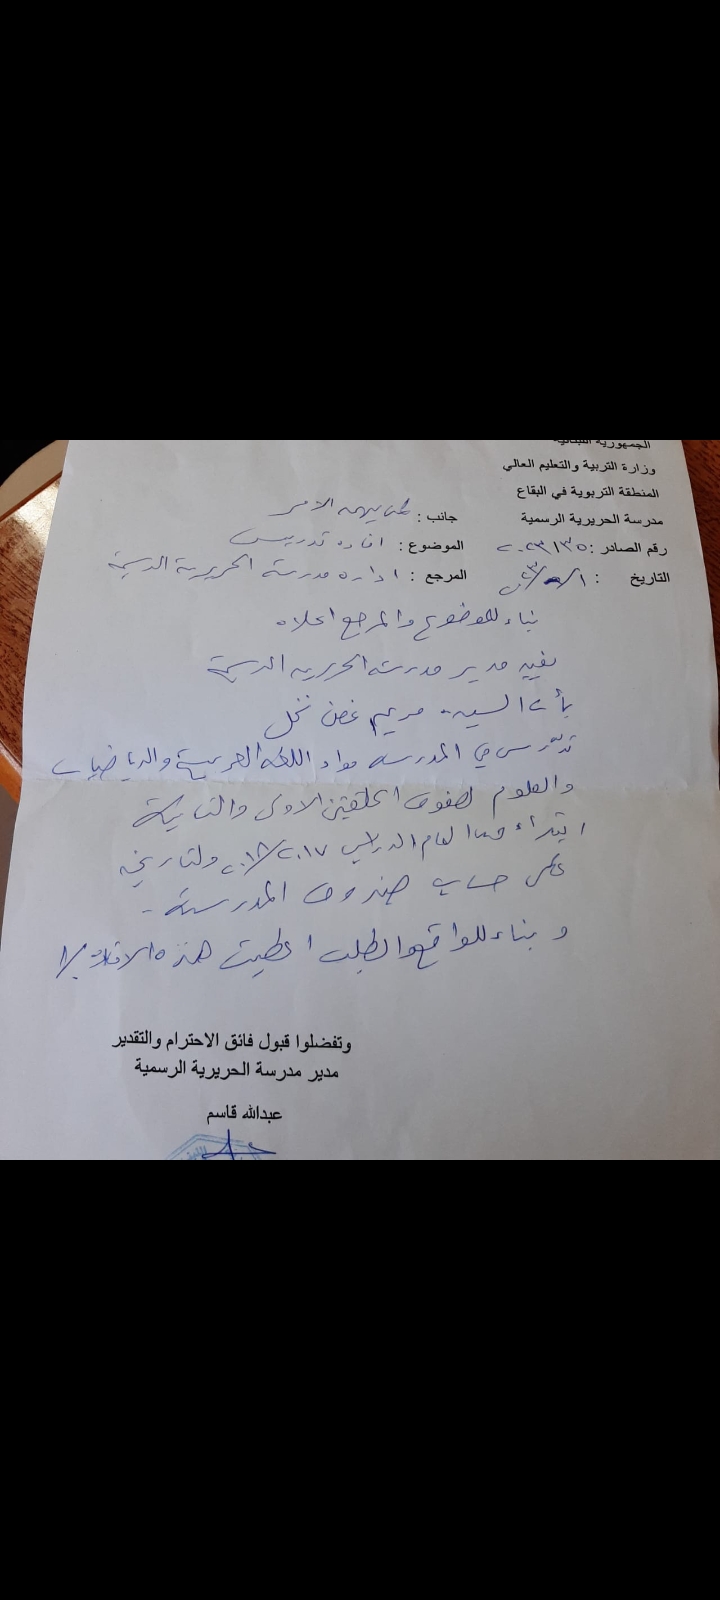 الجمهورية اللبنانية
وزارة التربية والتعليم العالي
المنطقة التربوية في البقاع
مدرسة الحريرية الرسمية
جانب : لمن يهمه الامر
رقم الصادر : ٢٠٢٣/٣٥
الموضوع : افاده تدريس
التاريخ :
المرجع : اداره مدرسة الحريرية الرسمية
بناء للموضوع والمرجع اعلاه
يفيد مدير مدرسة الحريرية الرسمية
بأن السيدة مريم غصن نخل
تدرّس في المدرسه مواد اللغه العربية والرياضيات
والعلوم لصفوف الحلقتين الاولى والثانية
ابتداء من العام الدراسي ٢٠١٧/٢٠١٨ ولتاريخه
على حساب صندوق المدرسة -
و بناء للواقع والطلب اعطيت هذه الافادة
وتفضلوا قبول فائق الاحترام والتقدير
مدير مدرسة الحريرية الرسمية
عبدالله قاسم